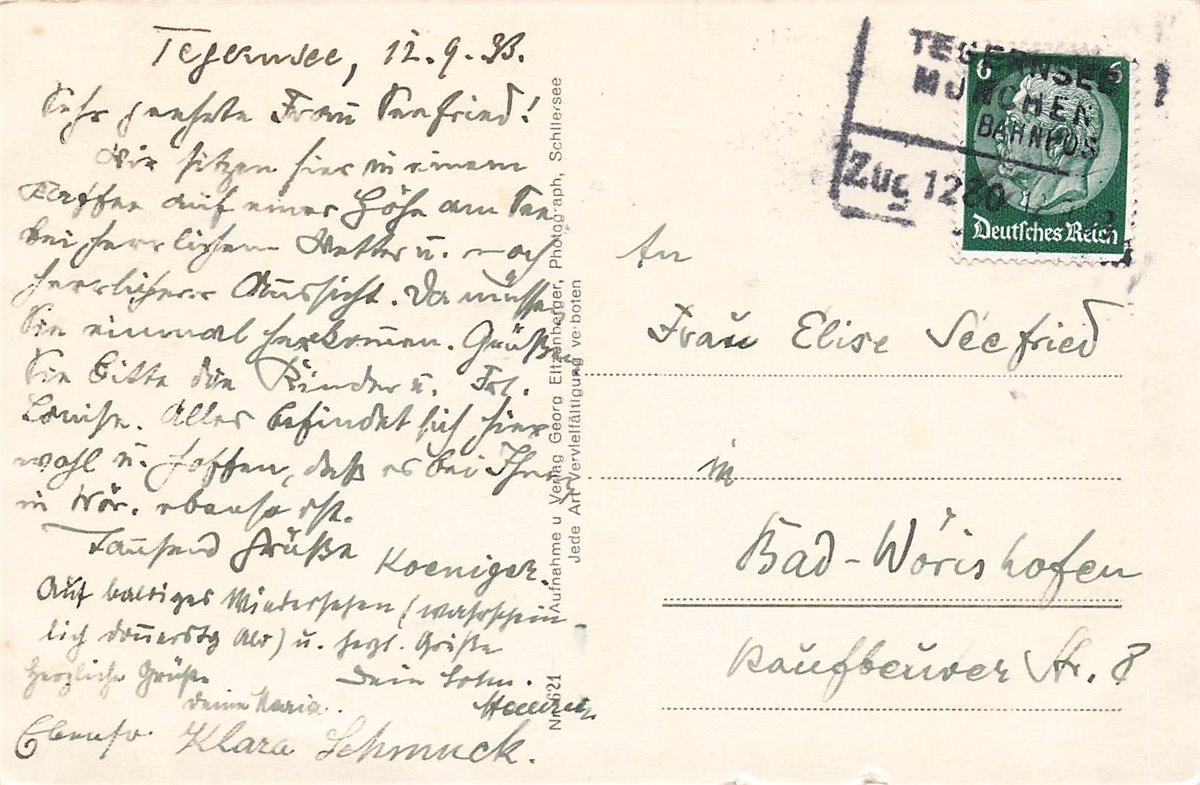 Tegernsee, 12.9.33.
Sehr geehrte Frau Seefried!
Wir sitzen hier in einem
Kaffee auf einer Höhe am See
bei herrlichem Wetter u. noch
herrlicherer Aussicht. Da müssen
Sie einmal herkommen. Grüßen
Sie bitte die Kinder u. Frl.
Louise. Alles befindet sich hier
wohl u. hoffen, daß es bei Ihnen
in Wör. ebenso ist.
Tausend Grüße
Koeniger.
Auf baldiges Wiedersehen (wahrschein-
lich donnerstg Abd) u. herzl. Grüße
Dein Sohn.
Herzliche Grüße
deine Maria.
Ebenso Klara Schmuck.
Nr. 621
Aufnahme u Verlag Georg Eltzenberger, Photograph, Schliersee
Jede Art Vervielfältigung verboten
TEGERNSEE
MÜNCHEN
BAHNPOS
Zug 1220
6 6
Deutsches Reich
An
Frau Elise Seefried
in
Bad-Wörishofen
Kaufbeurer Str. 8